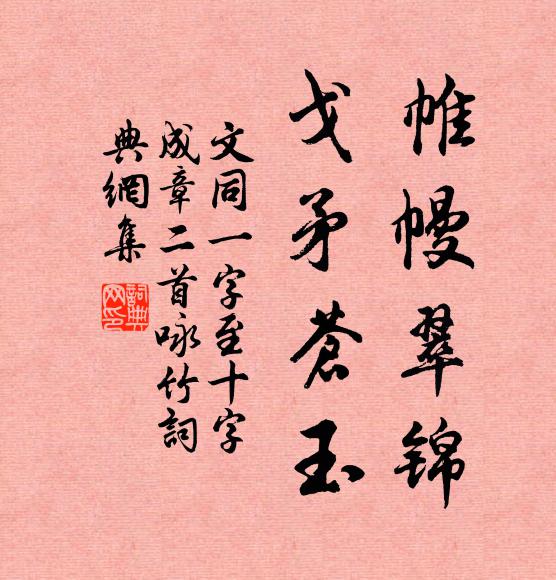 帷幔翠锦
戈矛蒼玉
文同一字至十字
成章二首咏竹詞
典網集
詞典網印